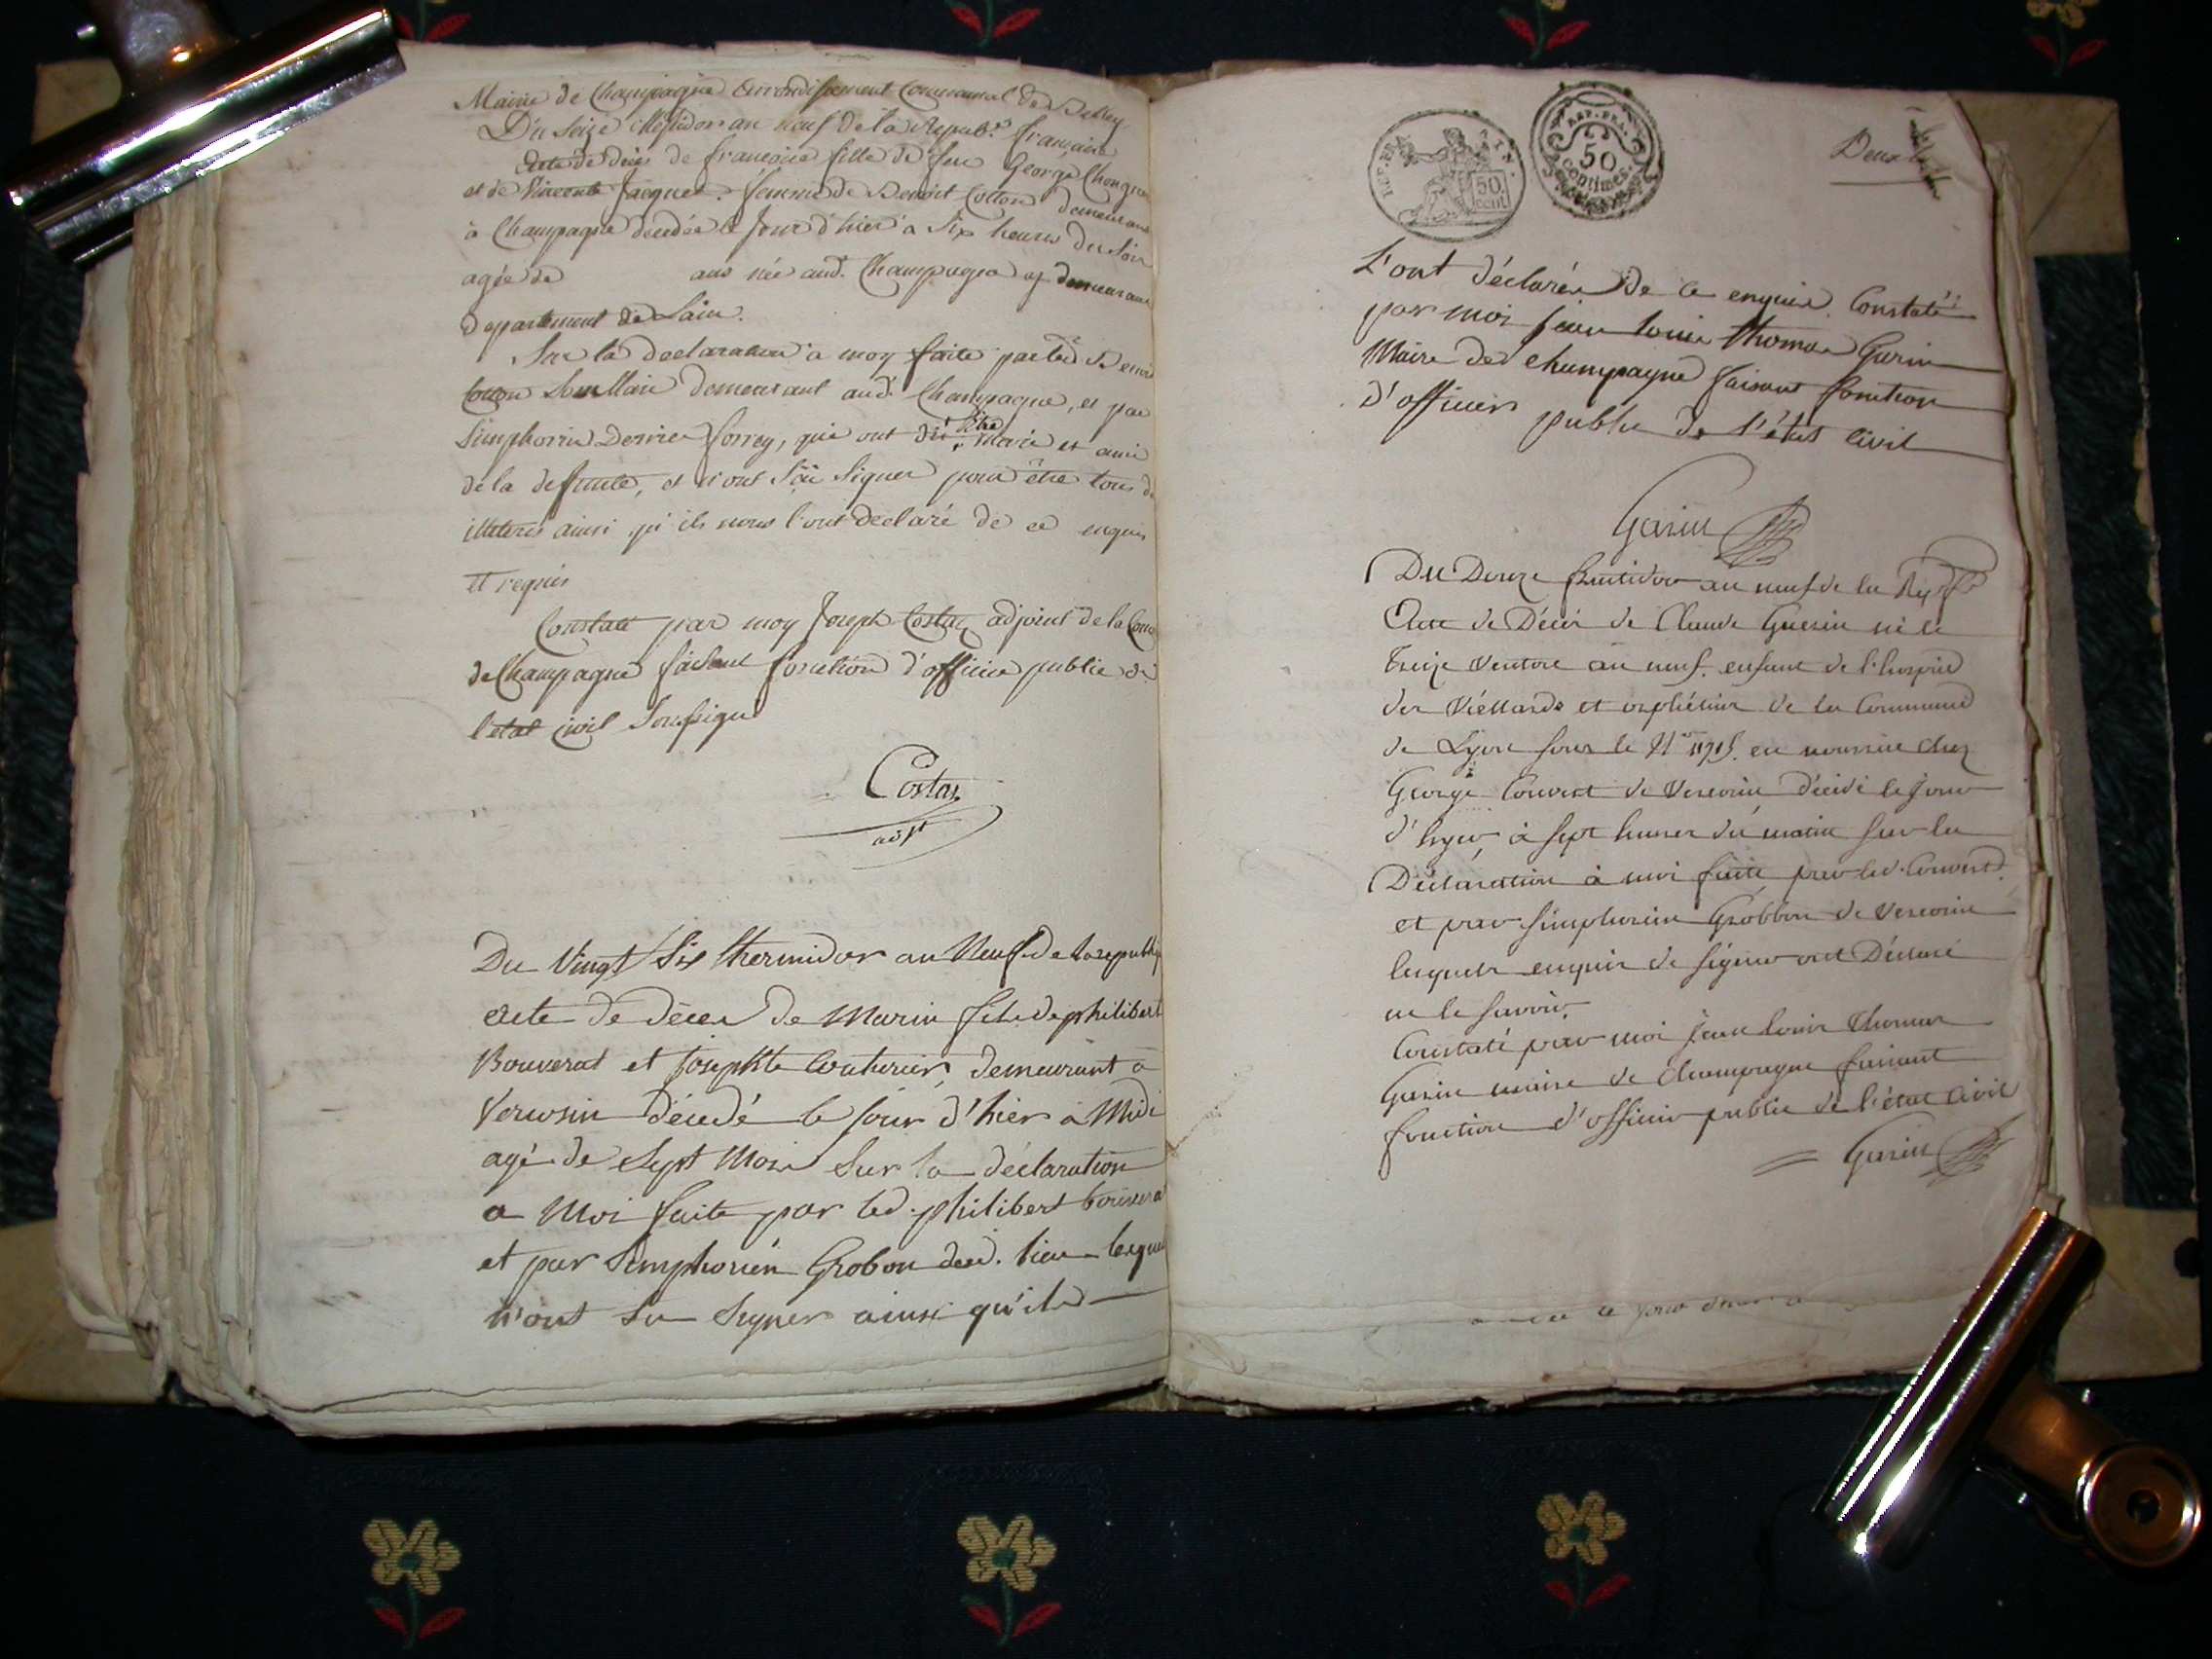 Mairie de Champagne Arrondissement Communal de Belley
Du Seize Messidor an neuf de la Republ. francaise
Acte de déces de francoise fille de feu George
et de Vincente Jacquet. femme de Benoit Cotton demeurant
à Champagne décédée le Jour d'hier à Six heures du Soir
agée de ans née aud. Champagne et demeurant
departement de Lain.
Sur la declaration a moy faite par led. Benoit
Cotton Son Mari demeurant aud. Champagne, et par
Simphorin, qui ont dit être marie et amie
de la deffunte, et n'ont Sçû Signer pour être tous d
illeteres ainsi qu'ils nous l'ont declaré de ce enquis
et requis
Constaté par moy Joseph Costaz adjoint de la Com
de Champagne faisant fonction d'officier public de
l'etat civil Soussigné
Costaz
adjt
Du Vingt Six thermidor an Neuf de la republiq
acte de déces de Marin fils de philibert
Bouverat et Josephte Couturier, demeurant à
Vercosin décédé le jour d'hier a Midi
agé de Sept Mois Sur la déclaration
a Moi faite par led. philibert bouvera
et par Simphorien Grobon dud. lieu lesquel
n'ont Su Signer ainsi qu'ils
REP. FRA.
50.
cent.
REP. FRA.
50
centimes.
Deux
L'ont déclarés de ce enquis. Constaté
par moi Jean louis thomas Garin
Maire de champagne faisant fonction
d'officier public de l'état Civil
Garin
Du Douze fructidor an neuf de la Rep
Acte de Décès de Claude Guerin né le
treize Ventose an neuf. enfant de l'hospice
des Viéllards et orphélins de la Commune
de Lyon sous le N° en nourrice chez
George Convert de Vercosin Décédé le jour
d'hyer, à sept heures du matin sur la
Déclaration à moi faite par led. Convert
et par Simphorien Grobbon de Vercosin
lesquels enquis de signer ont Déclaré
ne le savoir.
Constaté par moi Jean louis thomas
Garin maire de champagne faisant
fonction d'officier public de l'état Civil
Garin